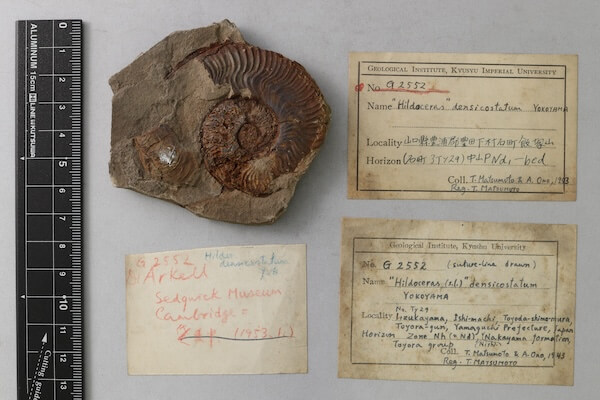 ALUMINUM 15cm
0
1
2
3
4
5
6
7
8
9
10
11
12
13
Cutting guide
GEOLOGICAL INSTITUTE, KYUSYU IMPERIAL UNIVERSITY
No. G 2552
Name "Hildoceras" densicostatum YOKOYAMA
Locality 山口縣豊浦郡豊田下村石町
Horizon (石町 Ty29) Nd, -bed
Coll. T. Matsumoto & A. Ono, 1943
Reg. T. MATSUMOTO
G 2552 Hildo. densicostatum Yok
Arkell
Sedgwick Museum
Cambridge =
(1953.1.)
Geological Institute, Kyushu University
No. G 2552 (suture-line drawn)
Name "Hildoceras, (s.l.)" densicostatum
YOKOYAMA
No. Ty29
Locality Ishi-machi, Toyoda-shimo-mura,
Toyora-gun, Yamaguchi Prefecture, Japan
Horizon Zone Nh (= Nd), Nakayama formation,
Toyora group
Coll. T. Matsumoto & A. Ono, 1943
Reg. T. MATSUMOTO